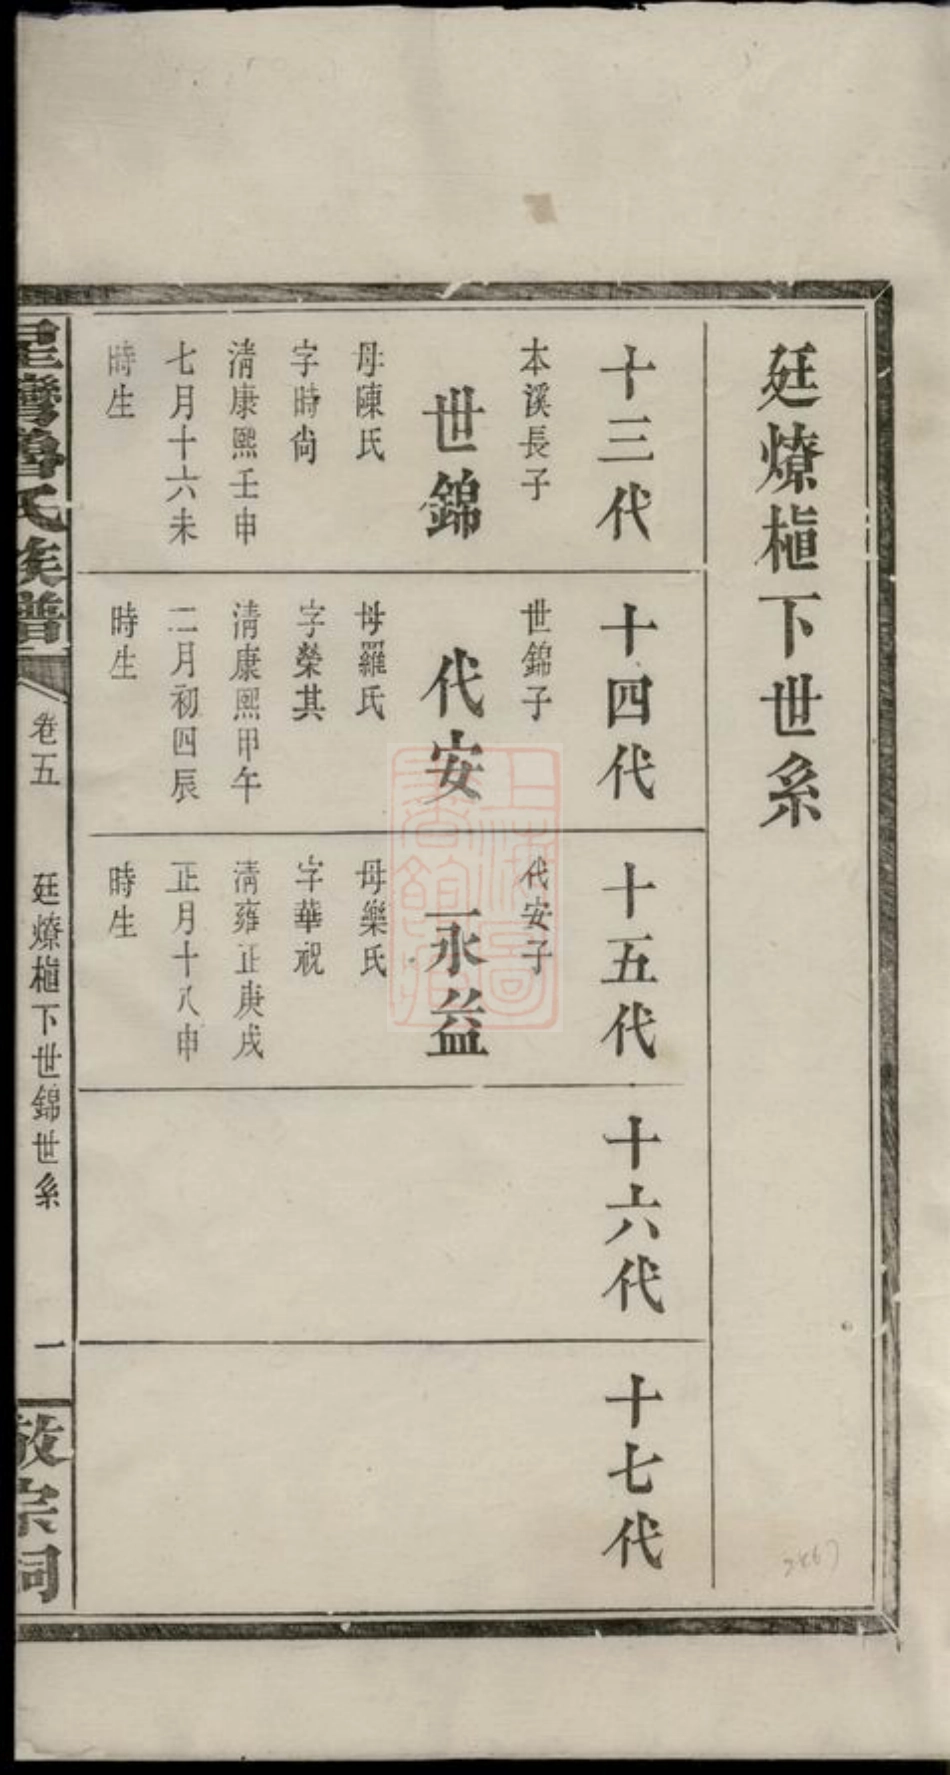 廷燎楦下世系
十三代
本溪長子
世錦
母陳氏
字時尙
清康熙壬申
七月十六未
時生
十四代
世錦子
代安
母羅氏
字榮其
清康熙甲午
二月初四辰
時生
十五代
代安子
永益
母樂氏
字華祝
清雍正庚戌
正月十八申
時生
十六代
十七代
氏族譜
卷五
廷燎楦下世錦世系
一
敬宗祠
上海圖
書館藏